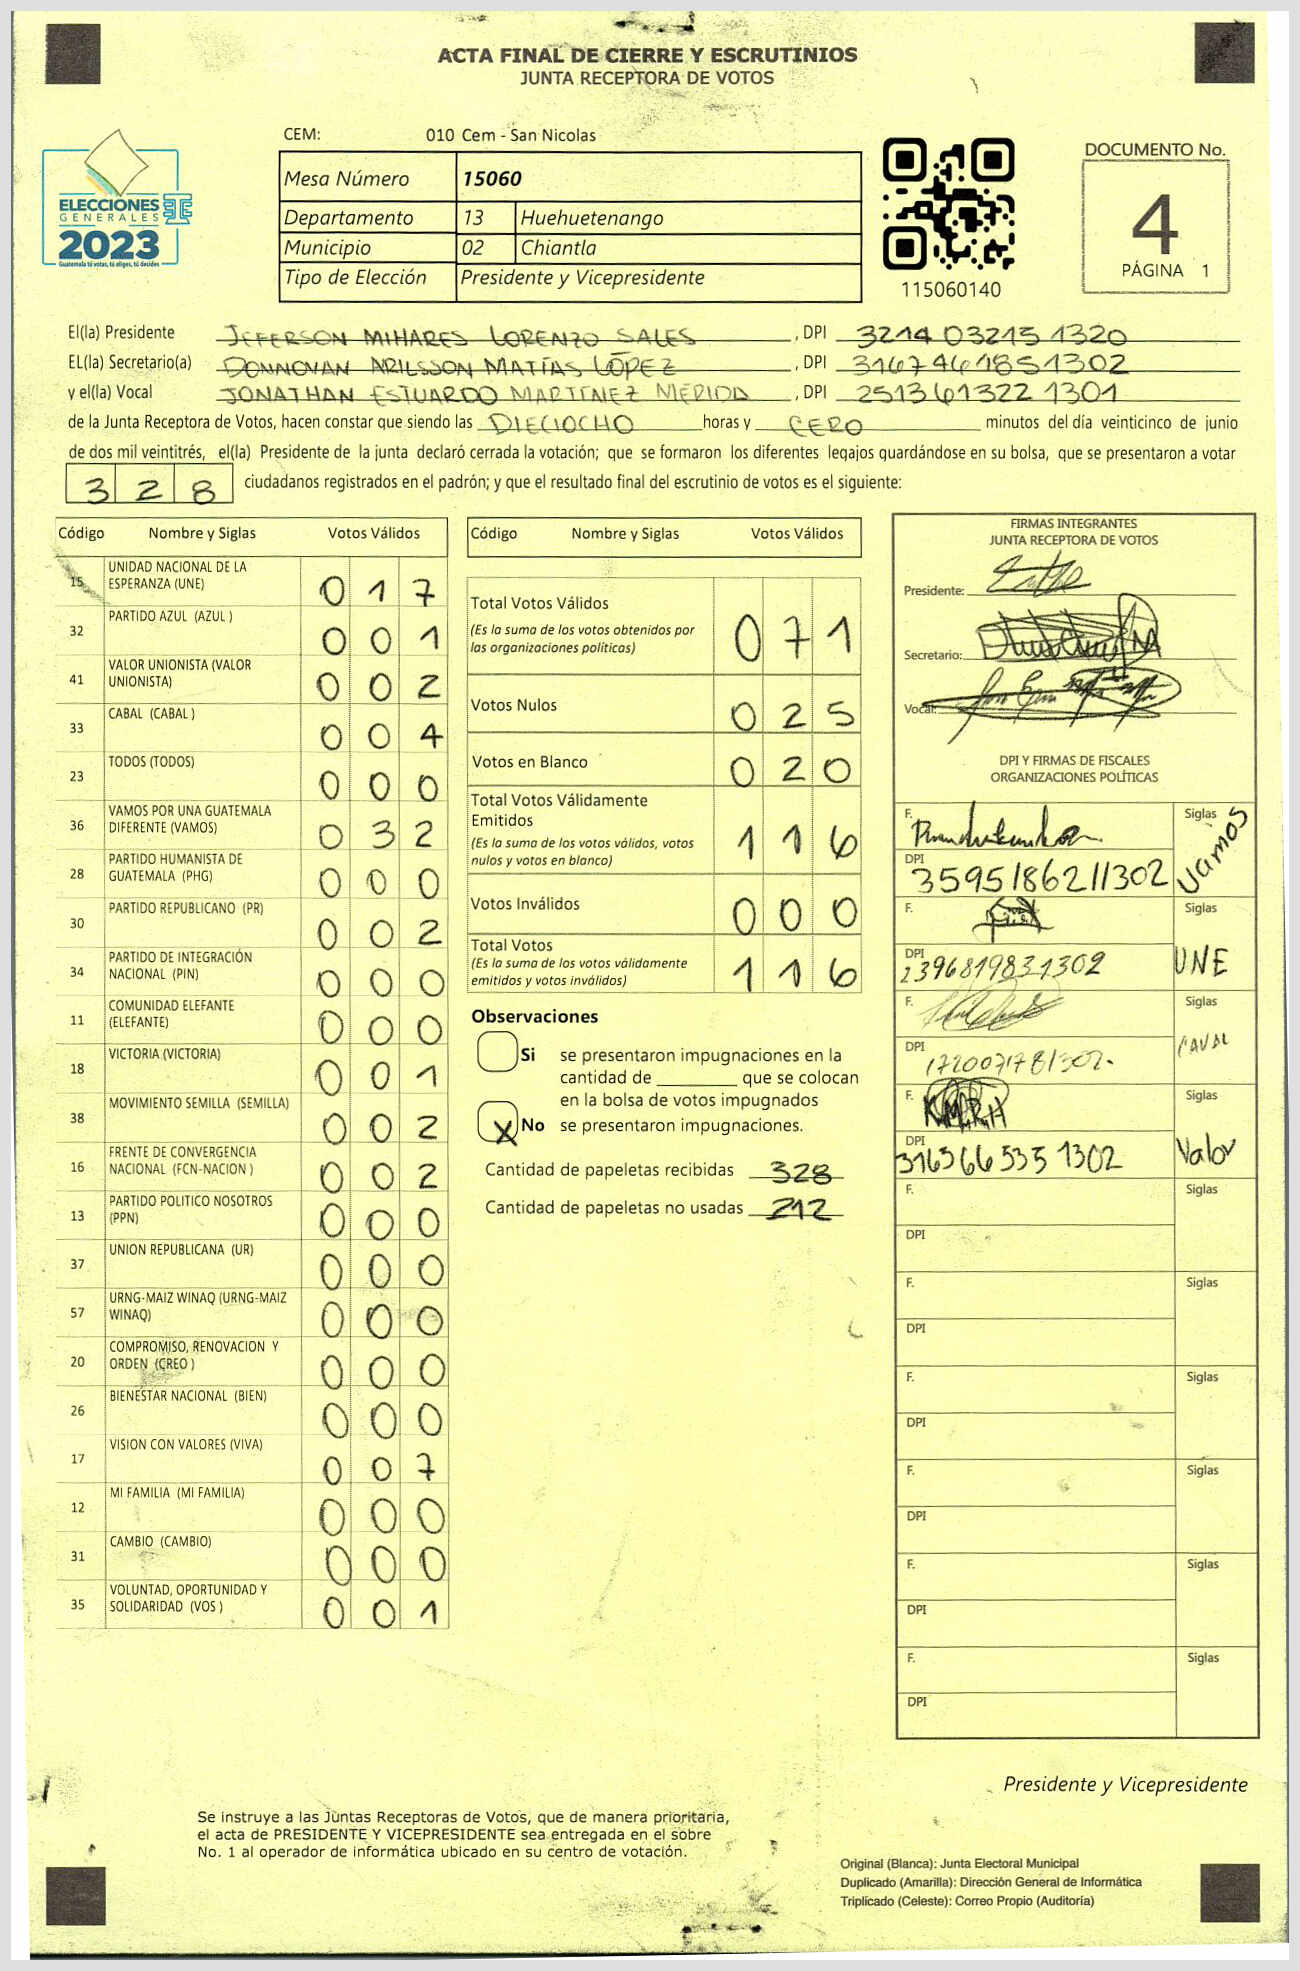 ACTA FINAL DE CIERRE Y ESCRUTINIOS
JUNTA RECEPTORA DE VOTOS
CEM: 010 Cem - San Nicolas
Mesa Número 15060
Departamento 13 Huehuetenango
Municipio 02 Chiantla
Tipo de Elección Presidente y Vicepresidente
ELECCIONES
GENERALES
2023
Guatemala tú votas, tú eliges, tú decides
115060140
DOCUMENTO No.
4
PÁGINA 1
El(la) Presidente JEFERSON MIHARES LORENZO SALES, DPI 3214 03215 1320
EL(la) Secretario(a) DONNOVAN ARILSSON MATÍAS LÓPEZ, DPI 3167 46185 1302
y el(la) Vocal JONATHAN ESTUARDO MARTÍNEZ MERIDA, DPI 2513 61322 1301
de la Junta Receptora de Votos, hacen constar que siendo las DIECIOCHO horas y CERO minutos del día veinticinco de junio
de dos mil veintitrés, el(la) Presidente de la junta declaró cerrada la votación; que se formaron los diferentes legajos guardándose en su bolsa, que se presentaron a votar
328 ciudadanos registrados en el padrón; y que el resultado final del escrutinio de votos es el siguiente:
Código Nombre y Siglas Votos Válidos
15 UNIDAD NACIONAL DE LA ESPERANZA (UNE) 017
32 PARTIDO AZUL (AZUL ) 001
41 VALOR UNIONISTA (VALOR UNIONISTA) 002
33 CABAL (CABAL ) 004
23 TODOS (TODOS) 000
36 VAMOS POR UNA GUATEMALA DIFERENTE (VAMOS) 032
28 PARTIDO HUMANISTA DE GUATEMALA (PHG) 000
30 PARTIDO REPUBLICANO (PR) 002
34 PARTIDO DE INTEGRACIÓN NACIONAL (PIN) 000
11 COMUNIDAD ELEFANTE (ELEFANTE) 000
18 VICTORIA (VICTORIA) 001
38 MOVIMIENTO SEMILLA (SEMILLA) 002
16 FRENTE DE CONVERGENCIA NACIONAL (FCN-NACION ) 002
13 PARTIDO POLITICO NOSOTROS (PPN) 000
37 UNION REPUBLICANA (UR) 000
57 URNG-MAIZ WINAQ (URNG-MAIZ WINAQ) 000
20 COMPROMISO, RENOVACION Y ORDEN (CREO ) 000
26 BIENESTAR NACIONAL (BIEN) 000
17 VISION CON VALORES (VIVA) 007
12 MI FAMILIA (MI FAMILIA) 000
31 CAMBIO (CAMBIO) 000
35 VOLUNTAD, OPORTUNIDAD Y SOLIDARIDAD (VOS ) 001
Código Nombre y Siglas Votos Válidos
Total Votos Válidos 071
(Es la suma de los votos obtenidos por
las organizaciones políticas)
Votos Nulos 025
Votos en Blanco 020
Total Votos Válidamente
Emitidos 116
(Es la suma de los votos válidos, votos
nulos y votos en blanco)
Votos Inválidos 000
Total Votos 116
(Es la suma de los votos válidamente
emitidos y votos inválidos)
Observaciones
Si se presentaron impugnaciones en la
cantidad de ________ que se colocan
en la bolsa de votos impugnados
X No se presentaron impugnaciones.
Cantidad de papeletas recibidas 328
Cantidad de papeletas no usadas 212
FIRMAS INTEGRANTES
JUNTA RECEPTORA DE VOTOS
Presidente:
Secretario:
Vocal:
DPI Y FIRMAS DE FISCALES
ORGANIZACIONES POLÍTICAS
F. Siglas Vamos
DPI 3595186211302
F. Siglas UNE
DPI 2396819831302
F. Siglas CAVAL
DPI 1720071781302.
F. KMRH Siglas Valor
DPI 316366535 1302
F. Siglas
DPI
F. Siglas
DPI
F. Siglas
DPI
F. Siglas
DPI
F. Siglas
DPI
F. Siglas
DPI
Presidente y Vicepresidente
Se instruye a las Juntas Receptoras de Votos, que de manera prioritaria,
el acta de PRESIDENTE Y VICEPRESIDENTE sea entregada en el sobre
No. 1 al operador de informática ubicado en su centro de votación.
Original (Blanca): Junta Electoral Municipal
Duplicado (Amarilla): Dirección General de Informática
Triplicado (Celeste): Correo Propio (Auditoría)